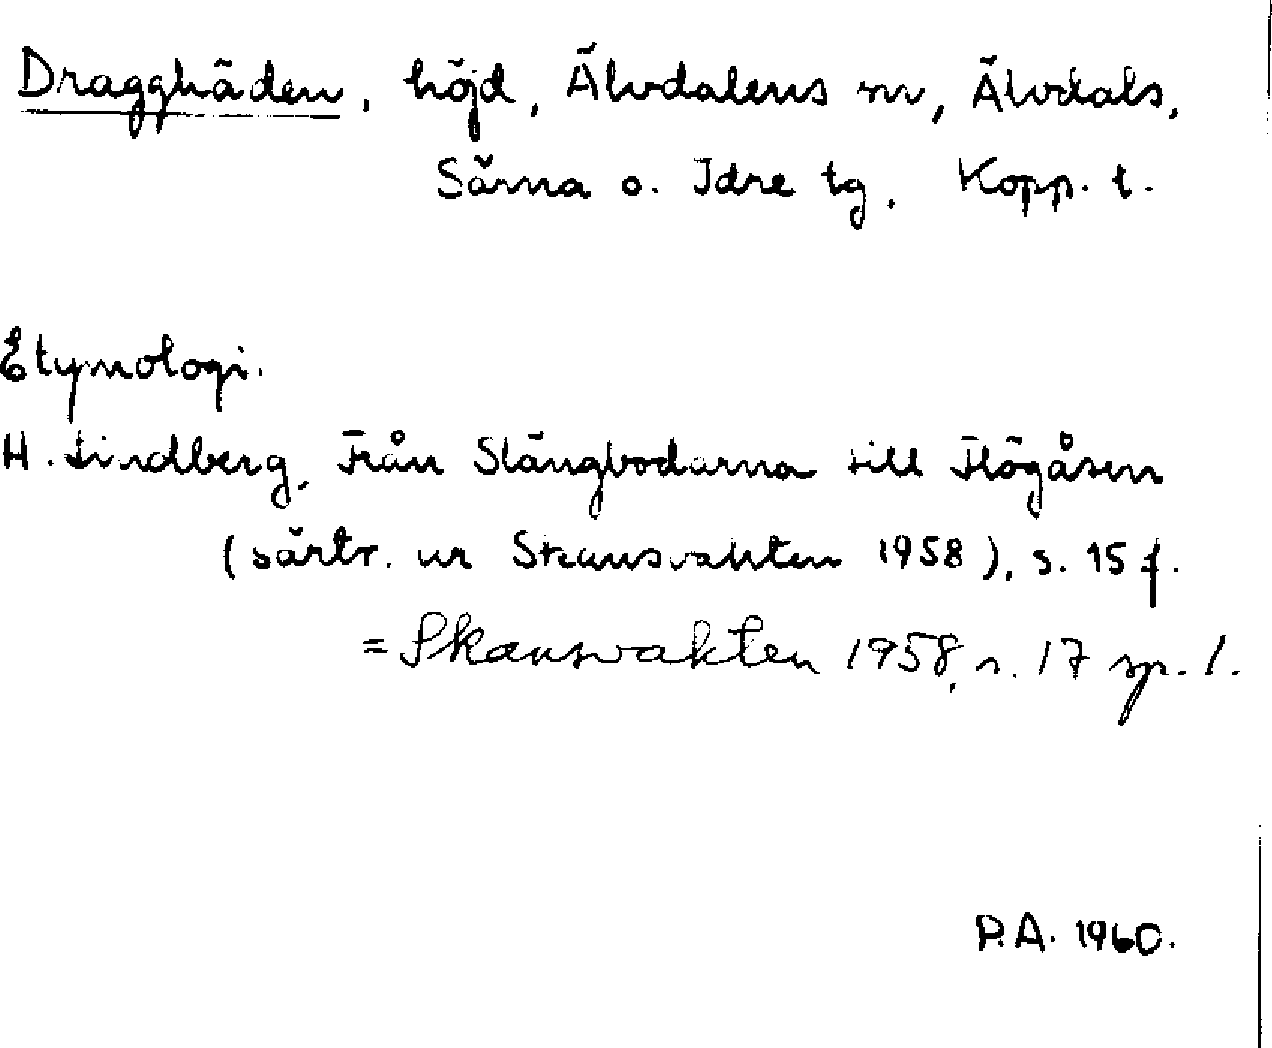 Dragghäden, höjd, Älvdalens sn, Älvdals,
Särna o. Idre tg, Kopp. l.
Etymologi.
H. Lindberg, Från Slängbodarna till Flögåsen
(särtr. ur Skansvakten 1958), s. 15 f.
= Skansvakten 1958, s. 17 sp. 1.
P.A. 1960.